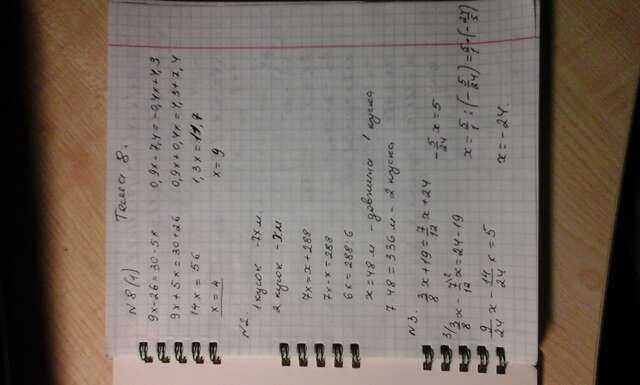 Тема 8.
N8(1)
9x-26=30-5x   0,9x-7,4=-0,4x+4,3
9x+5x=30+26   0,9x+0,4x=4,3+7,4
14x=56   1,3x=11,7
x=4   x=9
N2.
1 кусок -7xм.
2 кусок -xм
7x=x+288
7x-x=288
6x=288:6
x=48м -довжина 1 куска
7·48=336м -2 куска
N3.
3/8 x+19=7/12 x+24   -5/24 x=5
3/8 x-7/12 x=24-19   x=5/1:(-5/24)=5/1·(-24/5)
9/24 x-14/24 x=5   x=-24.